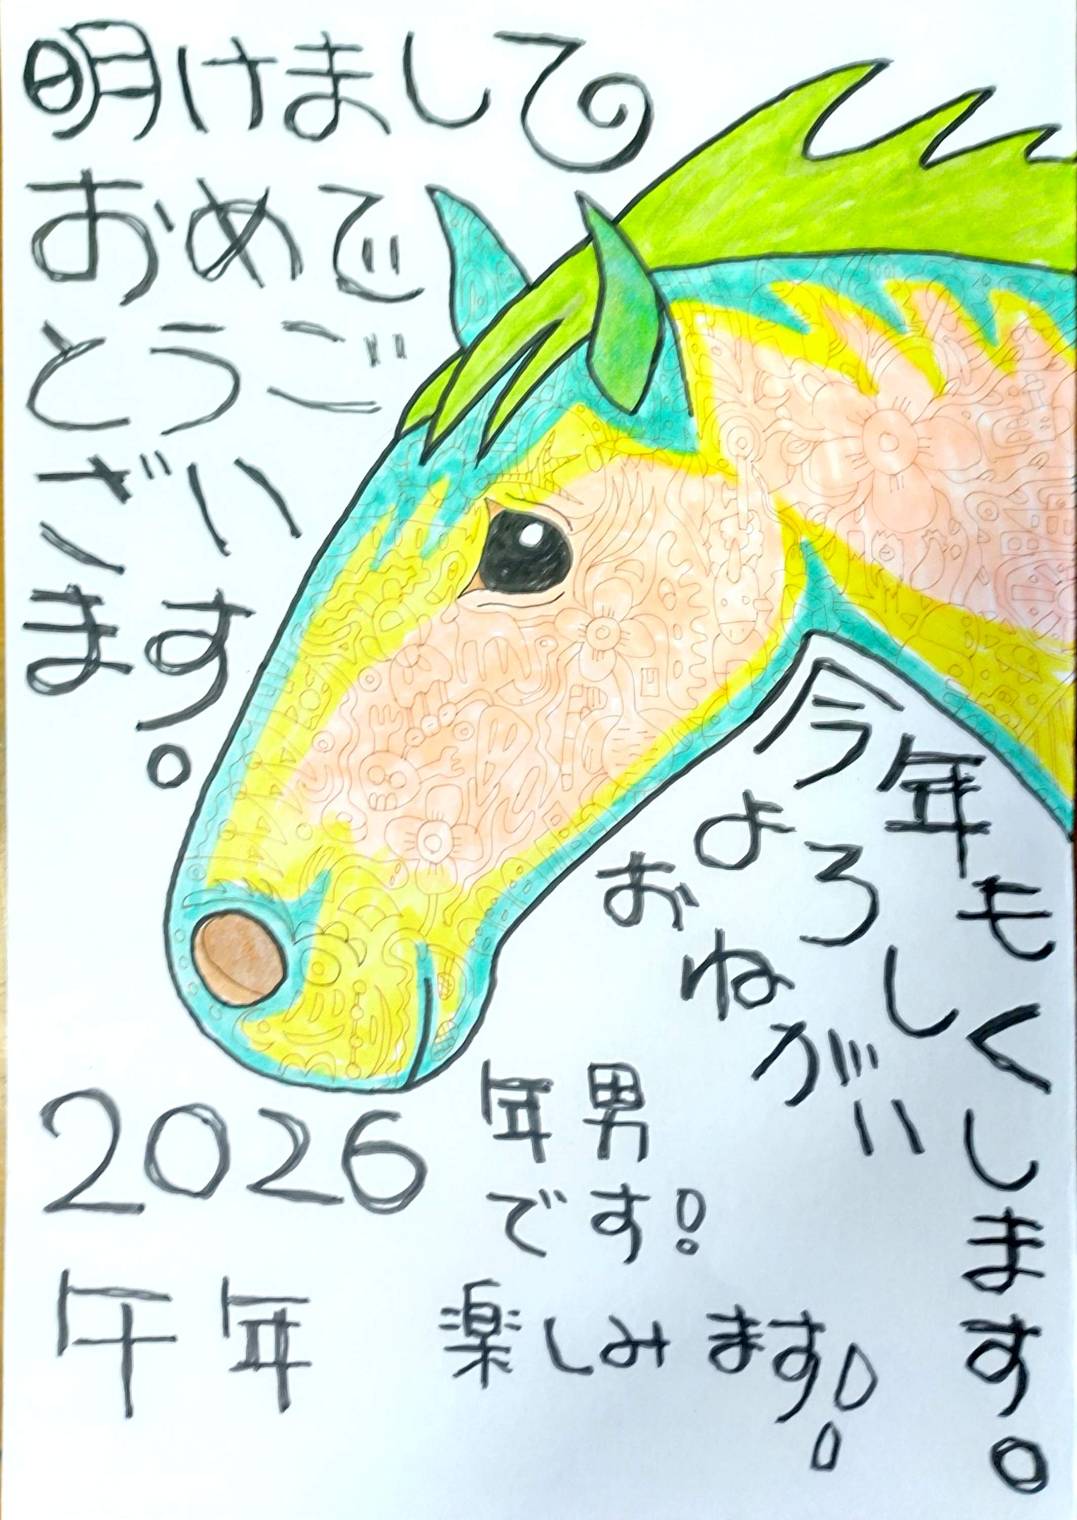 明けまして
おめで
とうご
ざい
ます。
今年も
よろしく
おねがい
します。
2026
午年
年男
です!
楽しみます!